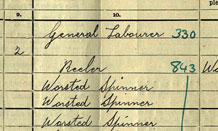 9. 10. ple
General Labourer 330
2
Reeler 843 Wo
Worsted Spinner
Worsted Spinner
Worsted Spinner